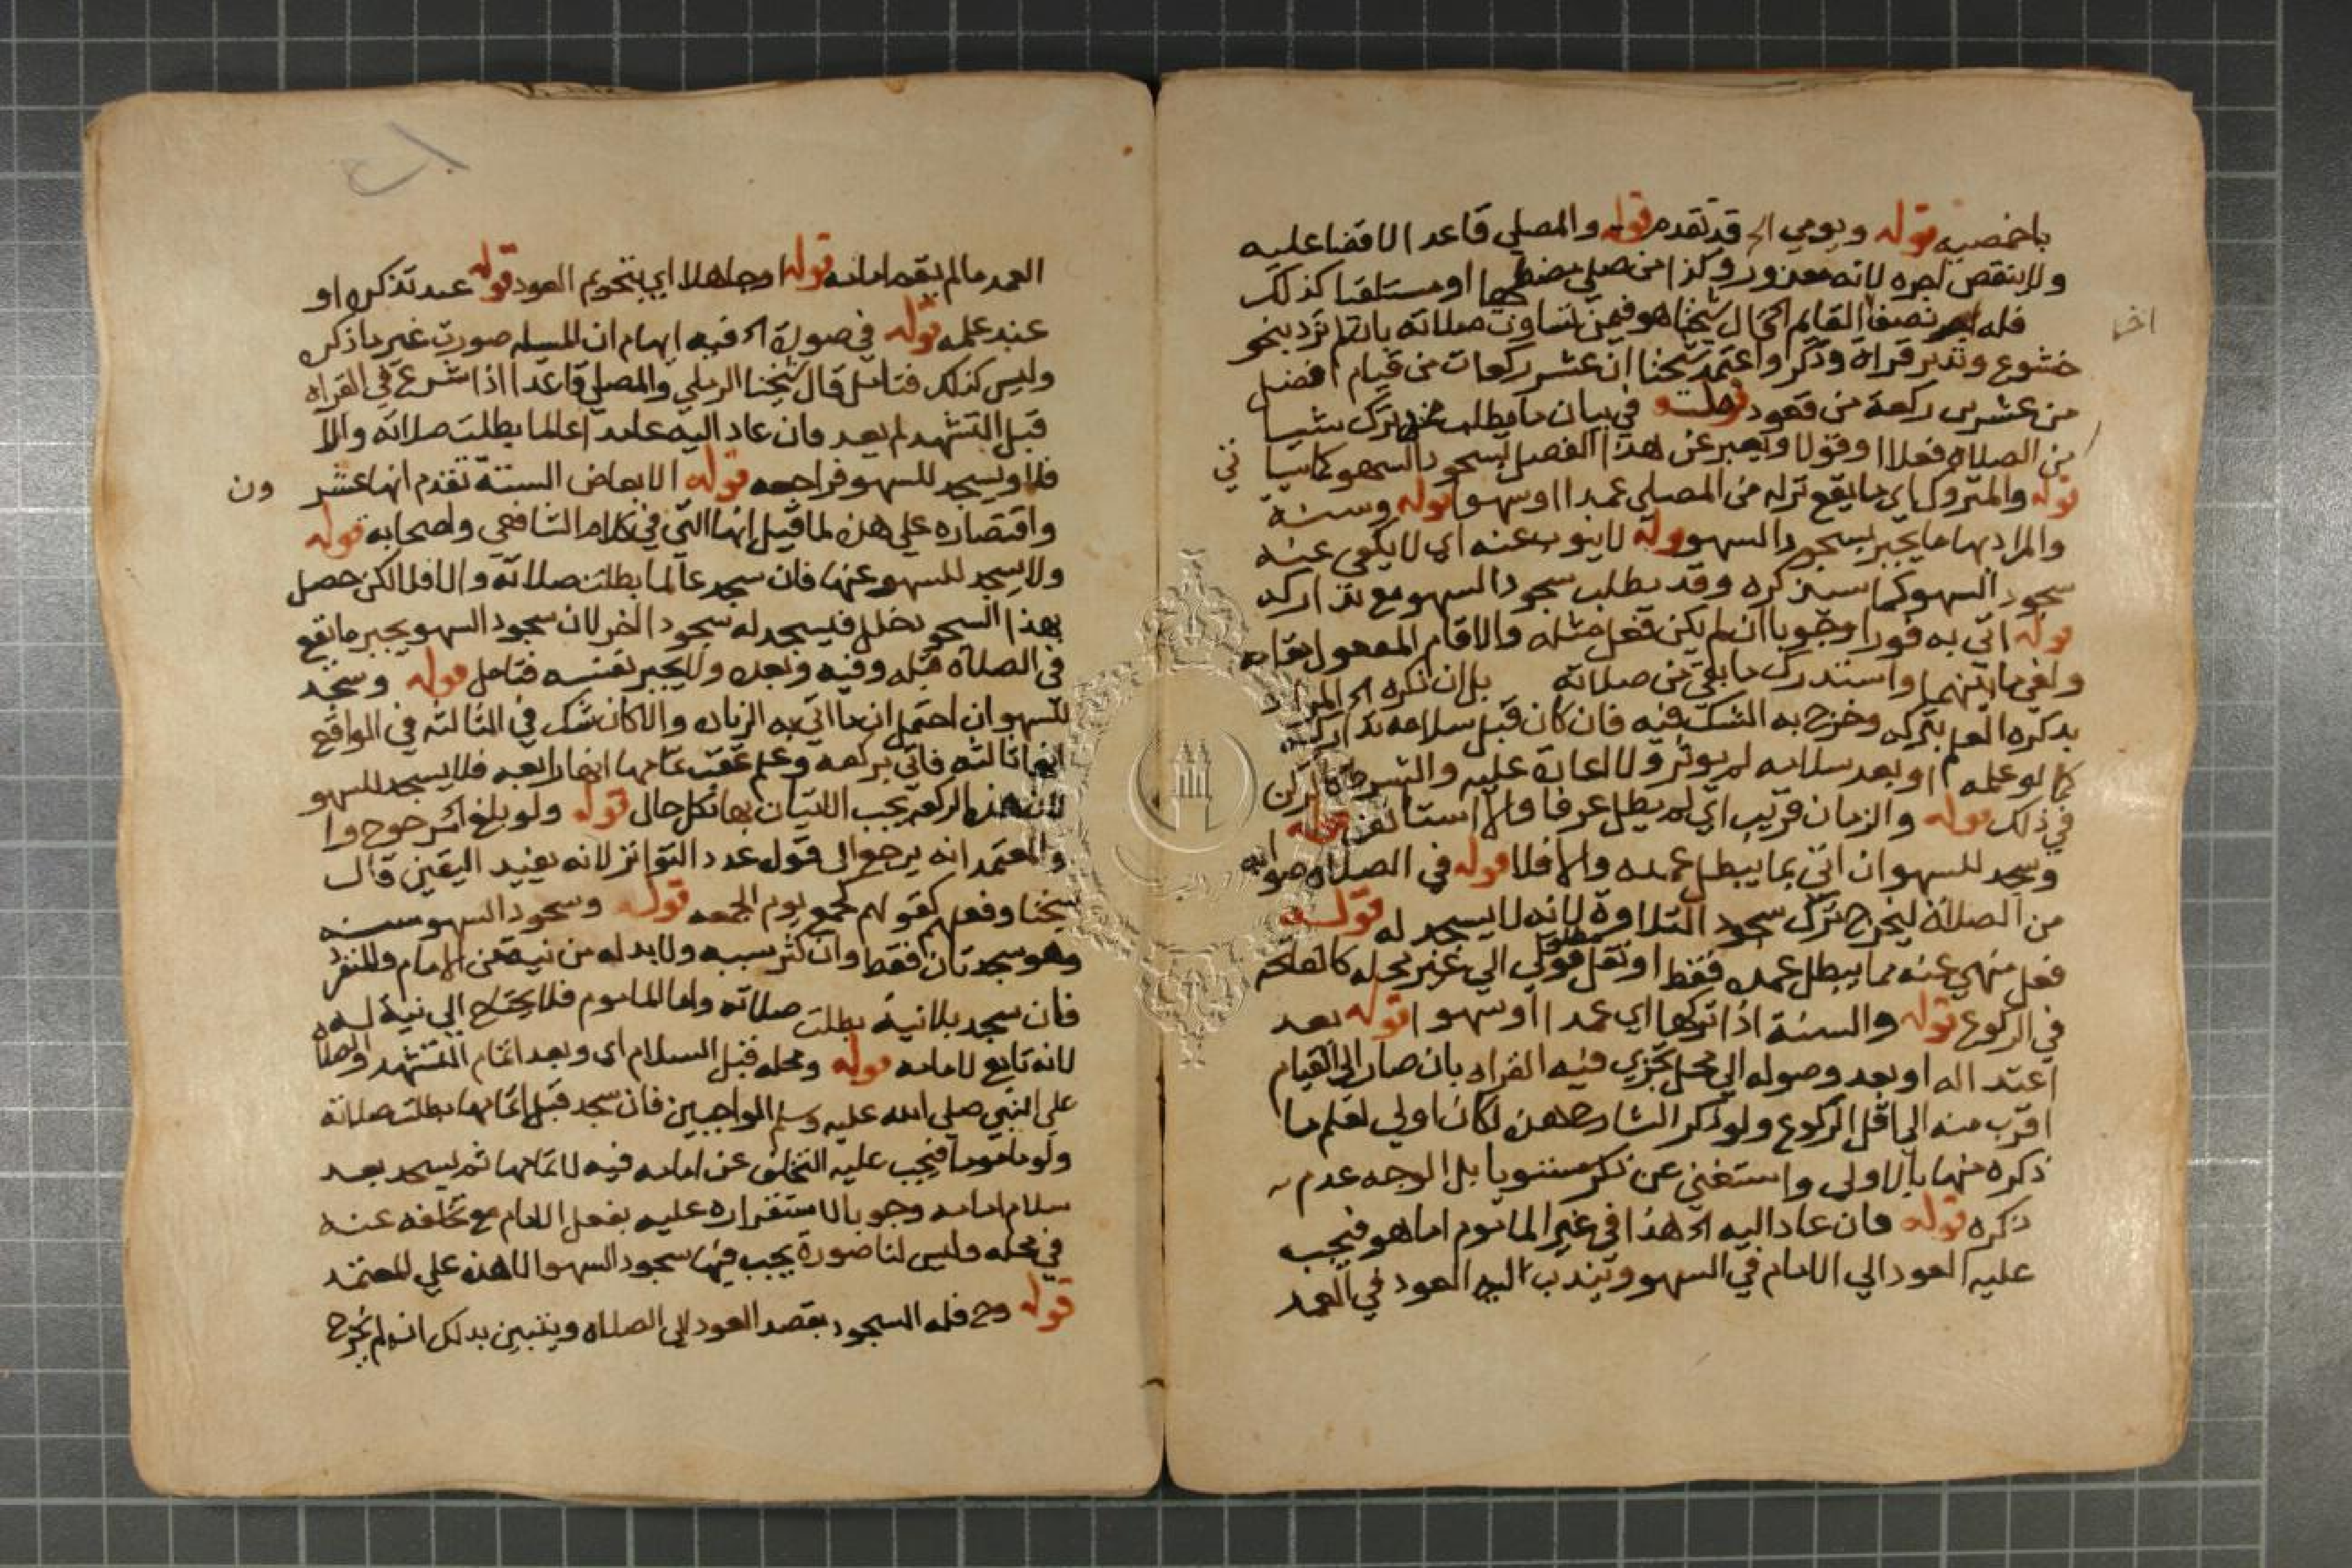 باخمصيه قوله ويومي الخ قد تقدم قوله والمصلي قاعدا لا قضا عليه
ولا ينقص اجره لانه معذور وكذا من صلي مضطجعا او مستلقيا كذلك
فله نصف القايم الخ قال شيخنا هو فيمن تساوت صلاته بان لم تزد بنحو
اخر
خشوع وتدبر قراة وذكر واعتمد شيخنا ان عشر ركعات من قيام افضل
من عشرين ركعة من قعود فصل في بيان ما يطلب بترك شيا
من الصلاة فعلا او قولا ويعبر عن هذا الفصل بسجود السهو كما سيا تي
قوله والمتروك اي ما يقع تركه من المصلي عمدا او سهوا قوله وسنة
والمراد بها ما يجبر بسجود السهو قوله لا ينوب عنه اي لا يكفي عنه
سجود السهو كما سيذكره وقد يطلب سجود السهو مع تداركه
قوله اتي به فورا وجوبا ان لم يكن فعل مثله والا قام المفعول مقامه
ولغي ما بينهما واستدرك ما بقي من صلاته بل ان ذكره الخ المراد
بذكره العلم بتركه وخرج به الشك فيه فان كان قبل سلامه تداركه
كما لو علمه او بعد سلامه لم يوثر ولا اعادة عليه والشرط كالركن
في ذلك قوله والزمان قريب اي لم يطل عرفا والا استانف قوله
وسجد للسهو ان اتي بما يبطل عمده والا فلا قوله في الصلاة صوابه
من الصلاة ليخرج ترك سجود التلاوة لانه لا يسجد له قوله
فعل منهي عنه مما يبطل عمده فقط او نقل مطلوب قولي الي غير محله كالفاتحه
في الركوع قوله والسنة اذا تركها اي عمدا او سهوا قوله بعد
اعتداله او بعد وصوله الي محل تجزي فيه القراه بان صار الي القيام
اقرب منه الي اقل الركوع ولو ذكر الشارح هذه لكان اولي لعلم ما
ذكره منها بالاولي واستغني عن ذكر مستويا بل الوجه عدم
ذكره قوله فان عاد اليه الخ هذا في غير الماموم اما هو فيجب
عليه العود الي الامام في السهو ويندب اليه العود في العمد
العمد ما لم يقم امامه قوله او جاهلا اي بتحريم العود قوله عند تذكره او
عند علمه قوله في صورة الخ فيه ايهام ان المسله صورت غير ما ذكر
وليس كذلك فتامل قال شيخنا الرملي والمصلي قاعدا اذا شرع في القراه
قبل التشهد لم يعد فان عاد اليه عامدا عالما بطلت صلاته والا
فلا ويسجد للسهو فراجعه قوله الابعاض الستة تقدم انها عشر ون
واقتصاره علي هذه لما قيل انها التي في كلام الشافعي واصحابه قوله
ولا يسجد للسهو عنها فان سجد عالما بطلت صلاته والا فلا لكن حصل
بهذا السجود خلل فيسجد له سجود اخر لان سجود السهو يجبر ما يقع
في الصلاة قبله وفيه وبعده ولا يجبر نفسه فتامل قوله وسجد
للسهو ان احتمل ان ما اتي به الزياده والا كان شك في الثالثه في الواقع
انها ثالثه فاتي بركعه وعلم عقب تمامها انها رابعه فلا يسجد للسهو
لان هذه الركعه يجب الاتيان بها بكل حال قوله ولو بلغ الخ مرجوح وا
والمعتمد انه يرجع الي قول عدد التواتر لانه يفيد اليقين قال
شيخنا وفعلهم كقولهم كجمع يوم الجمعه قوله وسجود السهو سنه
وهو سجدتان فقط وان كثر سببه ولا بد له من نية من الامام والمنفرد
فان سجد بلا نية بطلت صلاته واما الماموم فلا يحتاج الي نية له
لانه تابع لامامه قوله ومحله قبل السلام اي وبعد اتمام التشهد والصلاة
علي النبي صلي الله عليه وسلم الواجبين فان سجد قبل اتمامها بطلت صلاته
ولو ماموما فيجب عليه التخلف عن امامه فيه لاتمامها ثم يسجد بعد
سلام امامه وجوبا لاستقراره عليه بفعل الامام مع تخلفه عنه
في محله وليس لنا صورة يجب فيها سجود السهو الا هذه علي المعتمد
قوله وح فله السجود بقصد العود الي الصلاة ويتبين بذلك انه لم يخرج